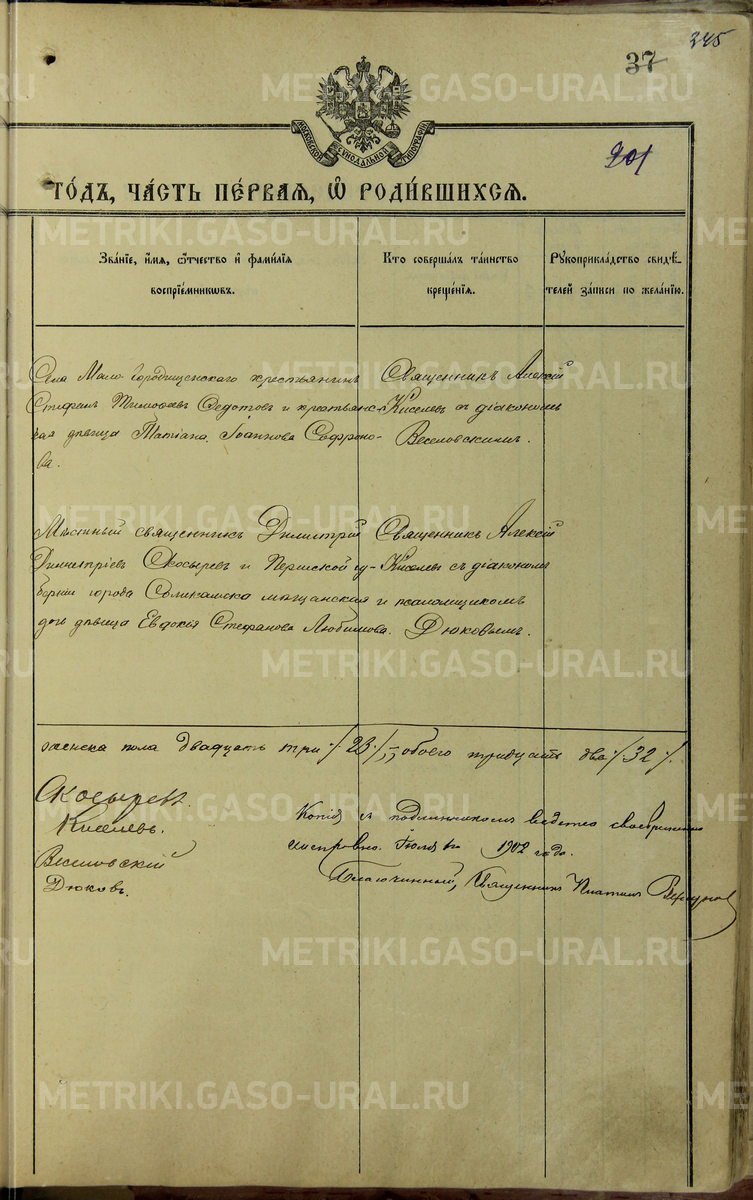 345
37
201
МОСКОВСКОЙ СѴНОДАЛЬНОЙ ТИПОГРАФІИ
ГО́ДЪ, ЧА́СТЬ ПЕ́РВАѦ, Ѡ҆ РОДИ́ВШИХСѦ.
Зва́нїе, и҆́мѧ, ѻ҆́тчество и҆ фами́лїѧ
воспрїе́мникѡвъ.
Кто соверша́лъ та́инство
креще́нїѧ.
Рꙋкоприкла́дство свидѣ́-
телей за́писи по жела́нїю.
Села Мало-Городищенскаго крестьянинъ
Стефанъ Тимофеевъ Федотовъ и крестьянс-
кая дѣвица Татіана Іоаннова Сафроно-
ва.
Священникъ Алексій
Киселевъ съ діакономъ
Веселовскимъ.
Мѣстный священникъ Димитрій
Димитріевъ Скосыревъ и Пермской гу-
берніи города Соликамска мѣщанская
дочь дѣвица Евдокія Стефанова Любимова.
Священникъ Алексій
Киселевъ съ діакономъ
и псаломщикомъ
Дюковымъ.
женска пола двадцать три /23/, обоего тридцать два /32/.
Скосыревъ.
Киселевъ.
Веселовскій
Дюковъ.
Копія съ подлинникомъ
Іюля 1902 года.
Благочинный, Священникъ
METRIKI.GASO-URAL.RU